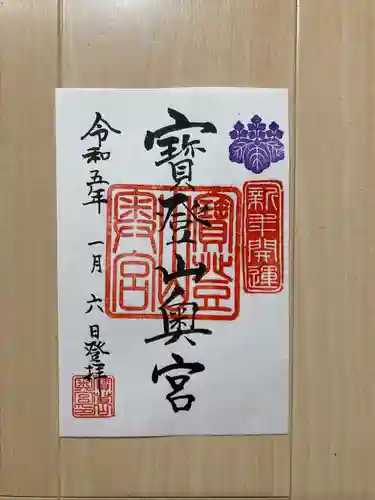 新年開運
寶登山奥宮
寶登山
奥宮
令和五年 一月 六日登拝